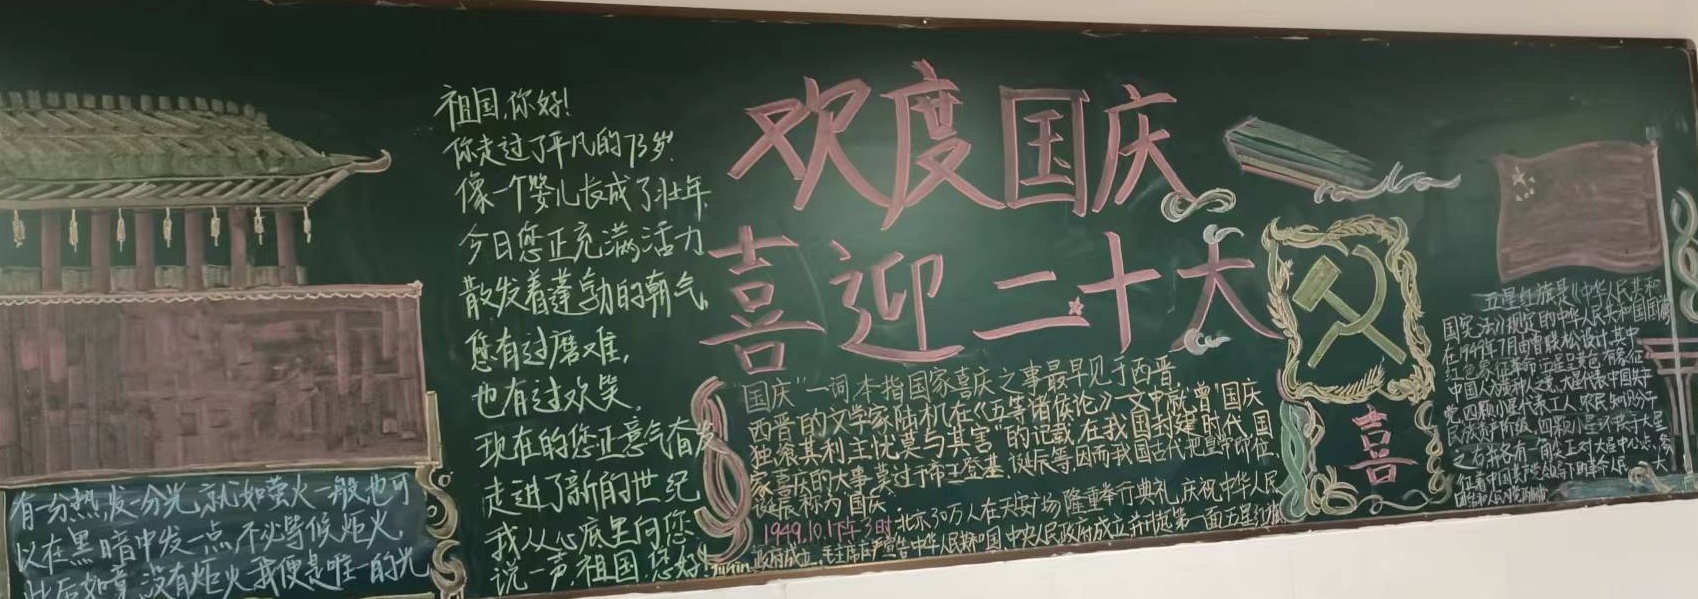 祖国,你好!
你走过了平凡的73岁.
像一个婴儿长成了壮年.
今日您正充满活力
散发着蓬勃的朝气,
您有过磨难,
也有过欢笑.
现在的您正意气奋发
走进了新的世纪
我从心底里向您
说一声,祖国,您好!
有一分热,发一分光,就如萤火一般,也可
以在黑暗中发一点,不必等候炬火,
此后如竟没有炬火,我便是唯一的光
欢度国庆
喜迎二十大
国庆"一词,本指国家喜庆之事最早见于西晋.
西晋的文学家陆机在《五等诸侯论》一文中就曾"国庆
独飨其利主忧莫与其害"的记载,在我国封建时代、国
家喜庆的大事,莫过于帝王登基、诞辰等.因而我国古代把皇帝即位、
诞辰称为国庆.
1949.10.1下午3时,北京30万人在天安广场隆重举行典礼,庆祝中华人民
政府成立,毛主席庄严宣告中华人民共和国中央人民政府成立,并升起第一面五星红旗
喜
五星红旗是《中华人民共和
国宪法》规定的中华人民共和国国旗
在1949年7月由曾联松设计,其中
红色象征革命,
中国人为黄种人 大星代表中国共产
党,四颗小星代表工人、农民、知识分子
民族资产阶级,四颗小星环拱于大星
之右,并各有一角尖正对大星中心点,象
征着中国共产党领导下的革命人民大
团结和人民